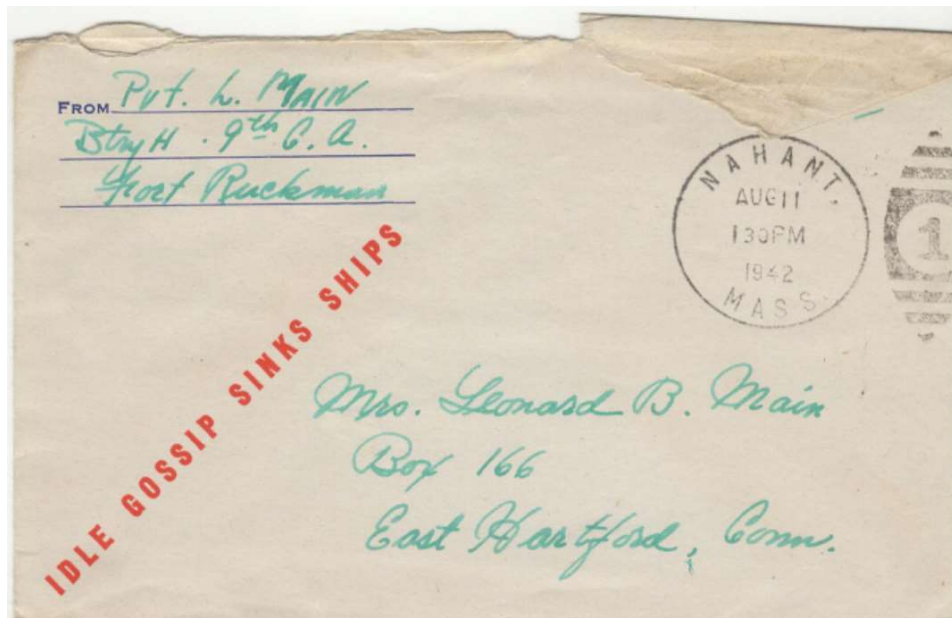 FROM Pvt. L. MAIN
Btry H. 9th C. A.
Fort Ruckman
NAHANT,
AUG 11
130PM
1942
MASS.
1
IDLE GOSSIP SINKS SHIPS
Mrs. Leonard B. Main
Box 166
East Hartford, Conn.